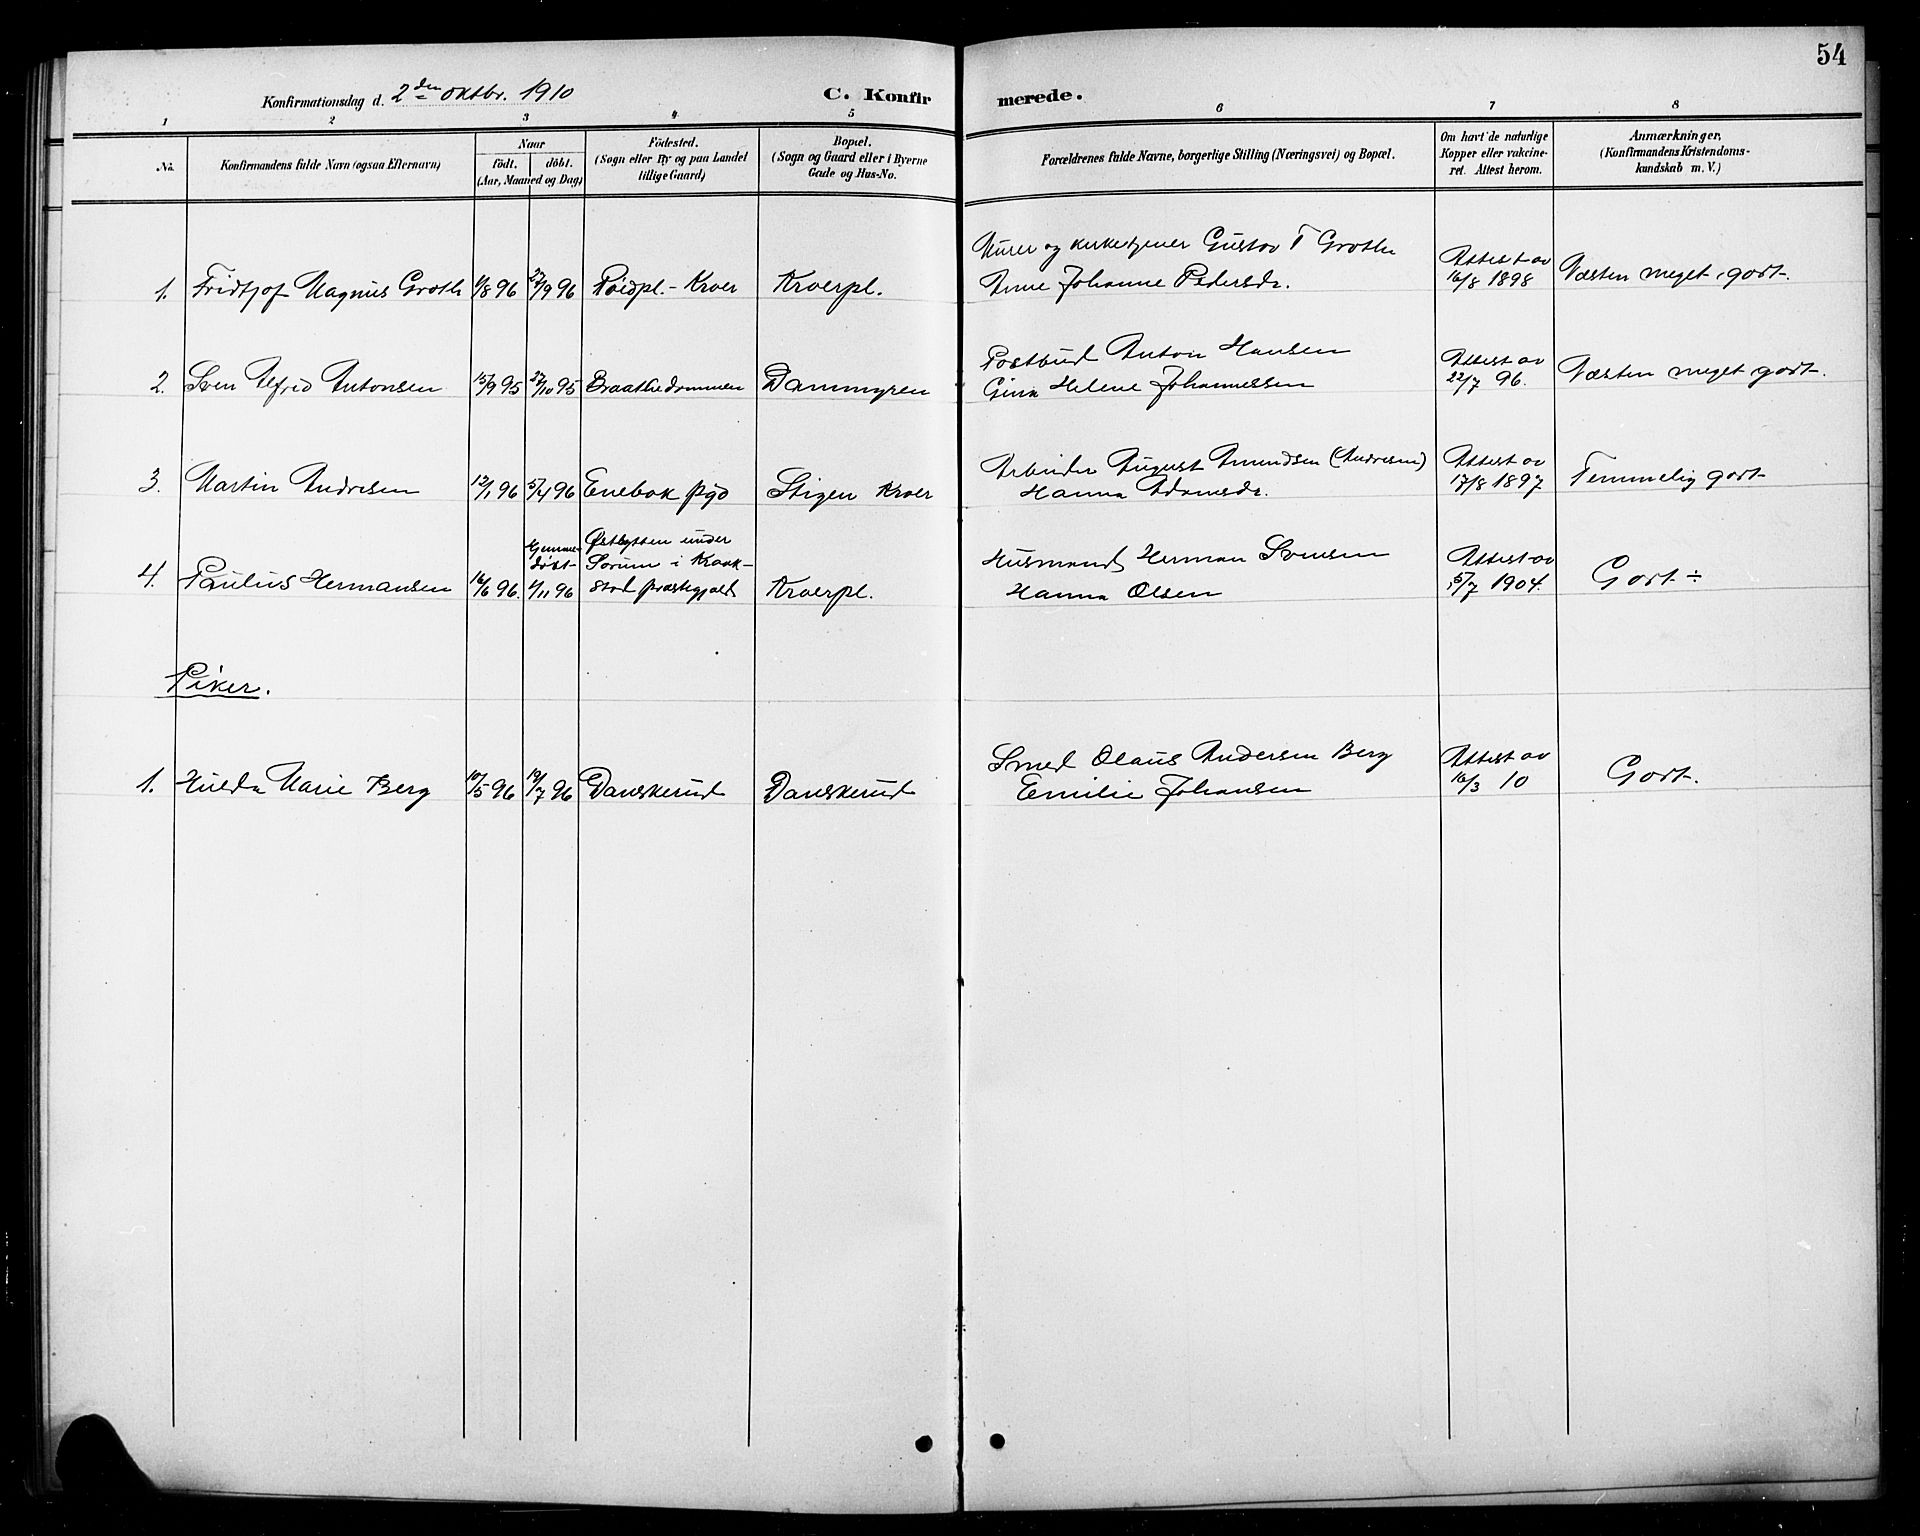 54
Konfirmationsdag d. 2den oktbr. 1910 C. Konfir merede.
1 2 3 4 5 6 7 8
No. Konfirmandens fulde Navn (ogsaa Efternavn) Naar födt. döbt. (Aar, Maaned og Dag) Födested. (Sogn eller By og paa Landet tillige Gaard) Bopæl. (Sogn og Gaard eller i Byerne Gade og Hus-No. Forældrenes fulde Navne, borgerlige Stilling (Næringsvei) og Bopæl. Om havt de naturlige Kopper eller vakcineret. Attest herom. Anmærkninger. (Konfirmandens Kristendomskundskab m. V.)
Murer og kirketjener Gustav T Groth Attest av
1. Fridtjof Magnus Groth 1/8 96 27/9 96 Røidpl. - Kroer Kroerpl. Anne Johanne Pedersdr. 16/8 1898 Næsten meget godt.
Postbud Anton Hansen Attest av
2. Sven Alfred Antonsen 15/9 95 27/10 95 Braatedammen Dammyren Gina Helene Johannessen 22/7 96. Næsten meget godt.
Arbeider August Amundsen (Andresen) Attest av
3. Martin Andresen 12/1 96 5/4 96 Enebak pgd Stigen Kroer Hanna Adamsdr. 17/8 1897 Temmelig godt
Hjemmedøbt Østbytten under Sørum i Kraak- Husmand Herman Svensen Attest av
4. Paulus Hermansen 16/6 96. 1/11 96 stad præstegjæld Kroerpl. Hanna Olsen 5/7 1904. Godt ÷
Piker.
Smed Olaus Andersen Berg Attest av
1. Hulda Marie Berg 10/5 96 19/7 96 Danskerud Danskerud Emilie Johansen 16/3 10 Godt.